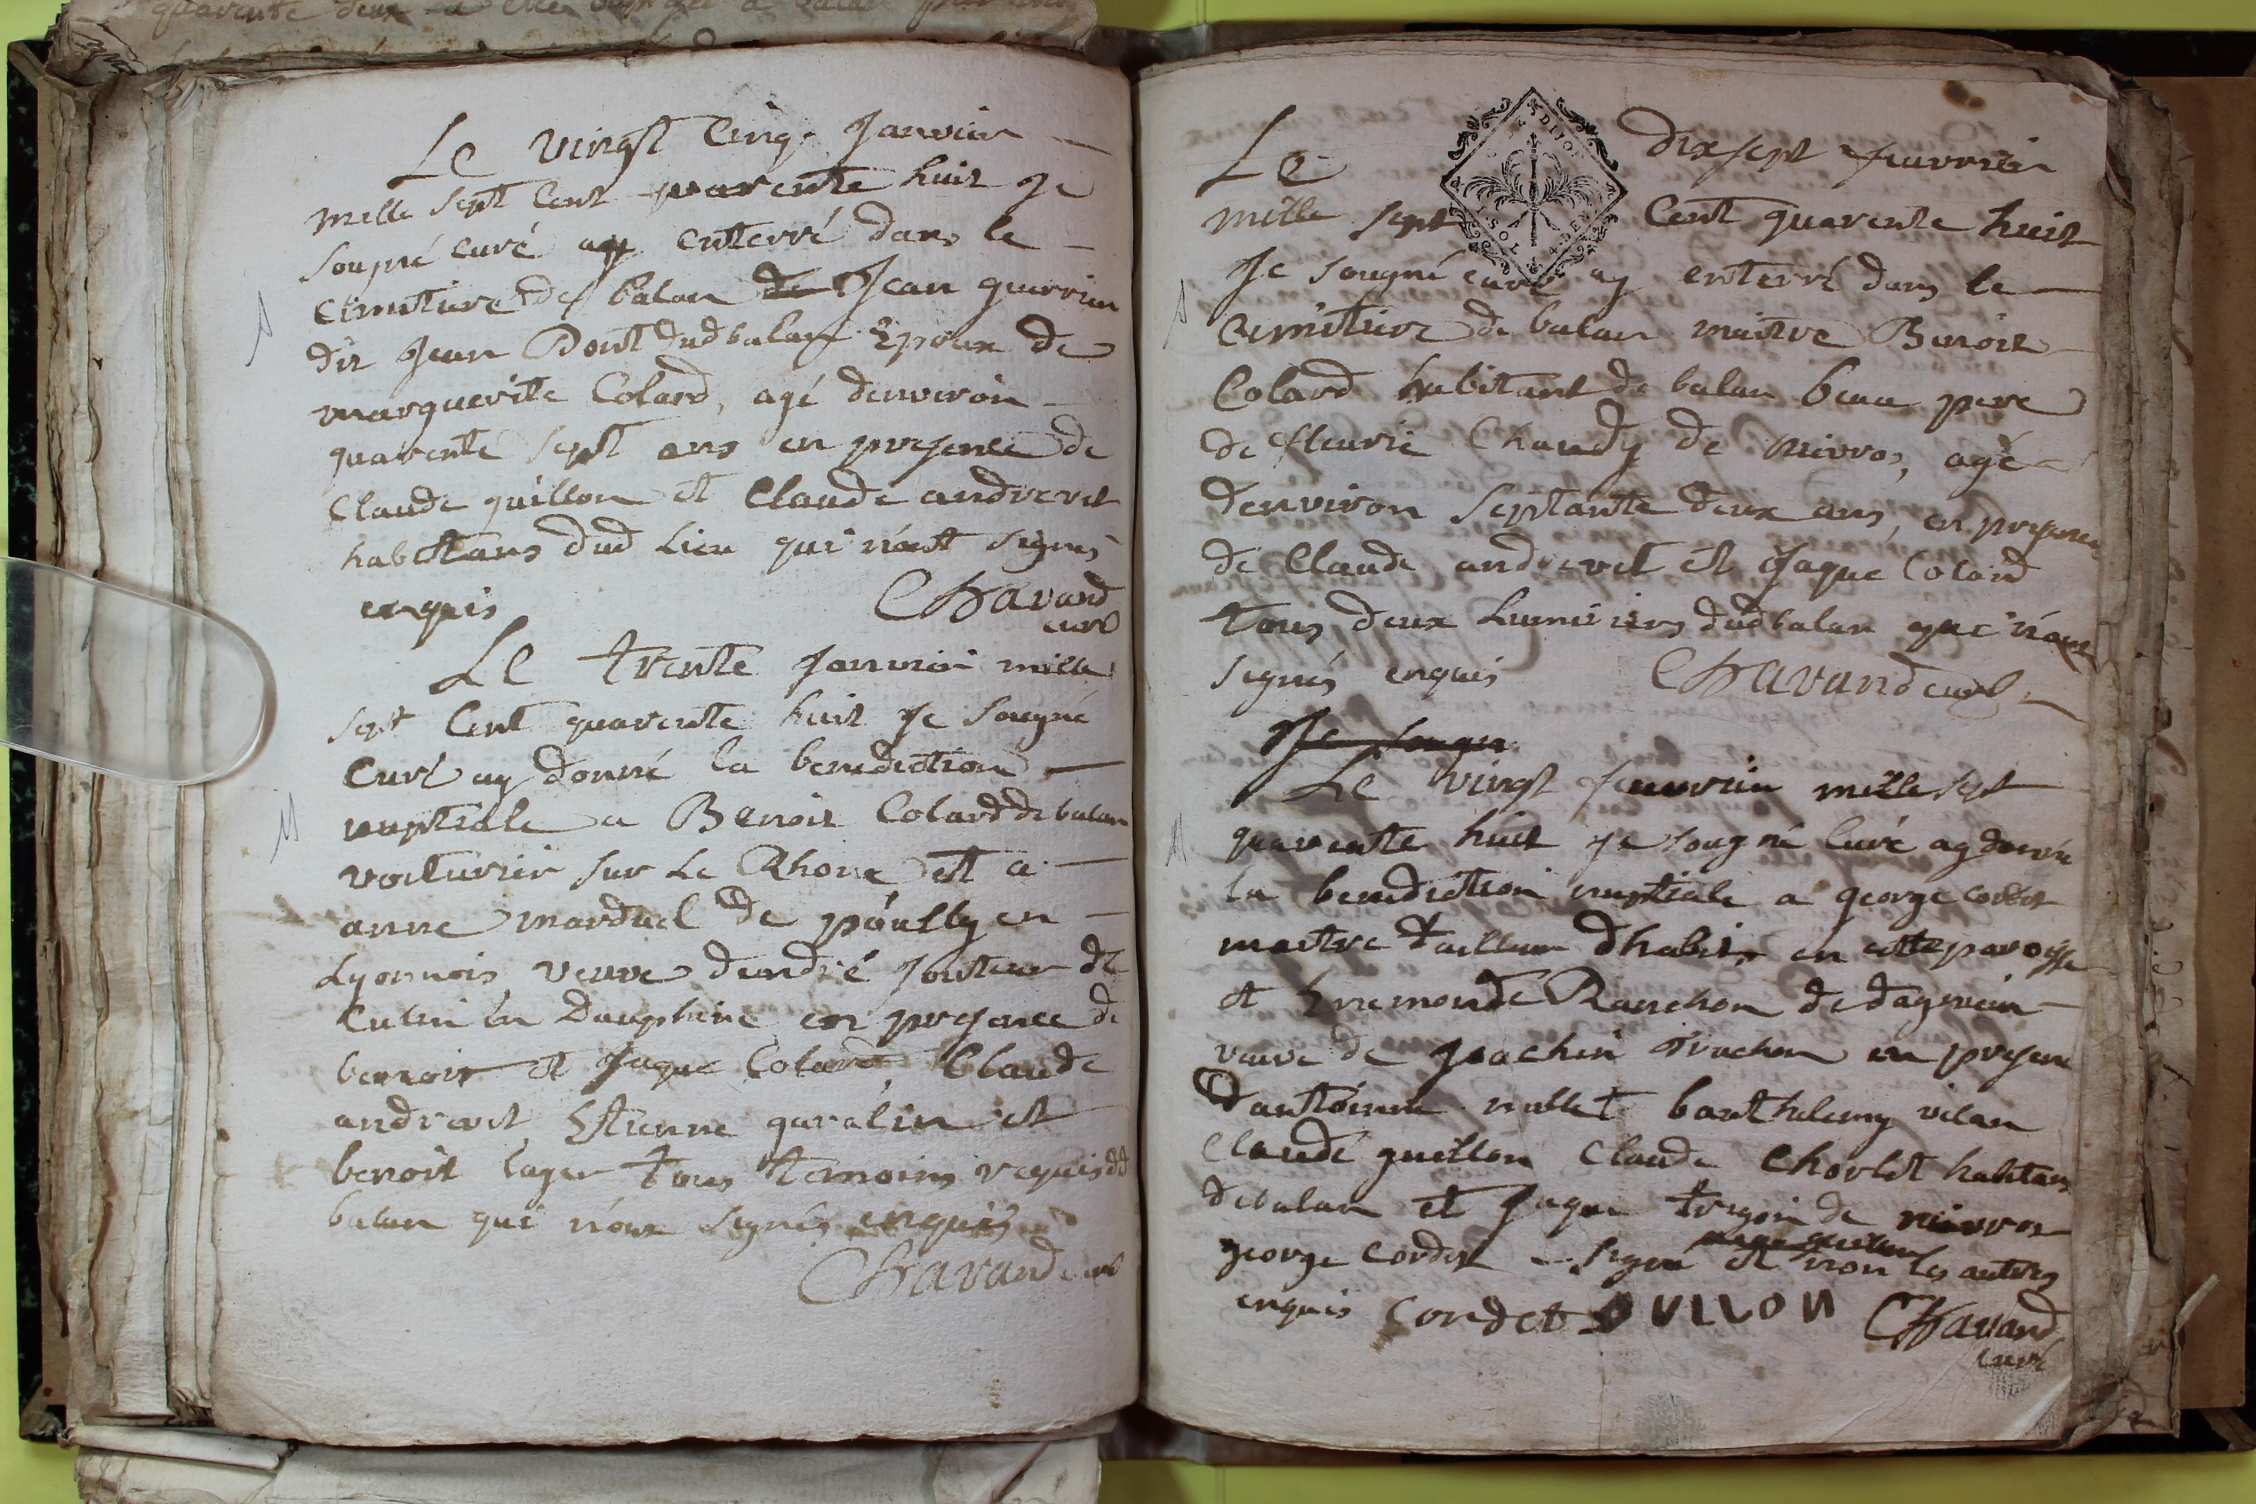 Le vingt Cinq Janvier
mille sept Cent quarente huit Je
sousigné curé ay enterré dans le
cimitiere de balan de Jean guerrier
dit Jean Dont dud balan Epoux de
marguerite Colard, agé denviron
quarente sept ans en presence de
Claude quillon et Claude andrevet
habitans dud Lieu qui n'ont signés
enquis Chavand
curé
Le trente Janvier mille
sept Cent quarente huit Je sousigné
Curé ay donné la benediction
nuptiale a Benoit Colard de balan
voiturier sur Le Rhone et a
anne marduel de pouilly en
Lyonnois veuve d'andré Jouteur de
en Dauphiné en presence de
benoit et Jaque Colard, Claude
andrevet, Etienne garalin et
benoit tous temoins requis dud
balan qui n'ont signés enquis
Chavand curé
Le dix sept feuvrier
mille sept Cent quarente huit
Je sousigné curé ay enterré dans le
Cimitiere de balan maitre Benoit
Colard habitant de balan beau pere
de fleurie Chaudy de nievroz, agé
denviron septante deux ans, en presence
de Claude andrevet et Jaque Colard
tous deux Luminiers dud balan qui n'ont
signés enquis Chavand curé
Je sougn
Le vingt feuvrier mille sept
quarente huit je sougné Curé ay donné
la benediction nuptiale a george cordet
maitre tailleur d'habits en cette paroisse
et Enemonde Ranchon de dagnieu
veuve de Joachin Truchon en presence
D'antoinne nallet barthelemy vilan
Claude guillon Claude Chorlet habitans
de balan et Jaque de nievroz
george cordet signé et non les autres
enquis cordet QUILLON Chavand
curé